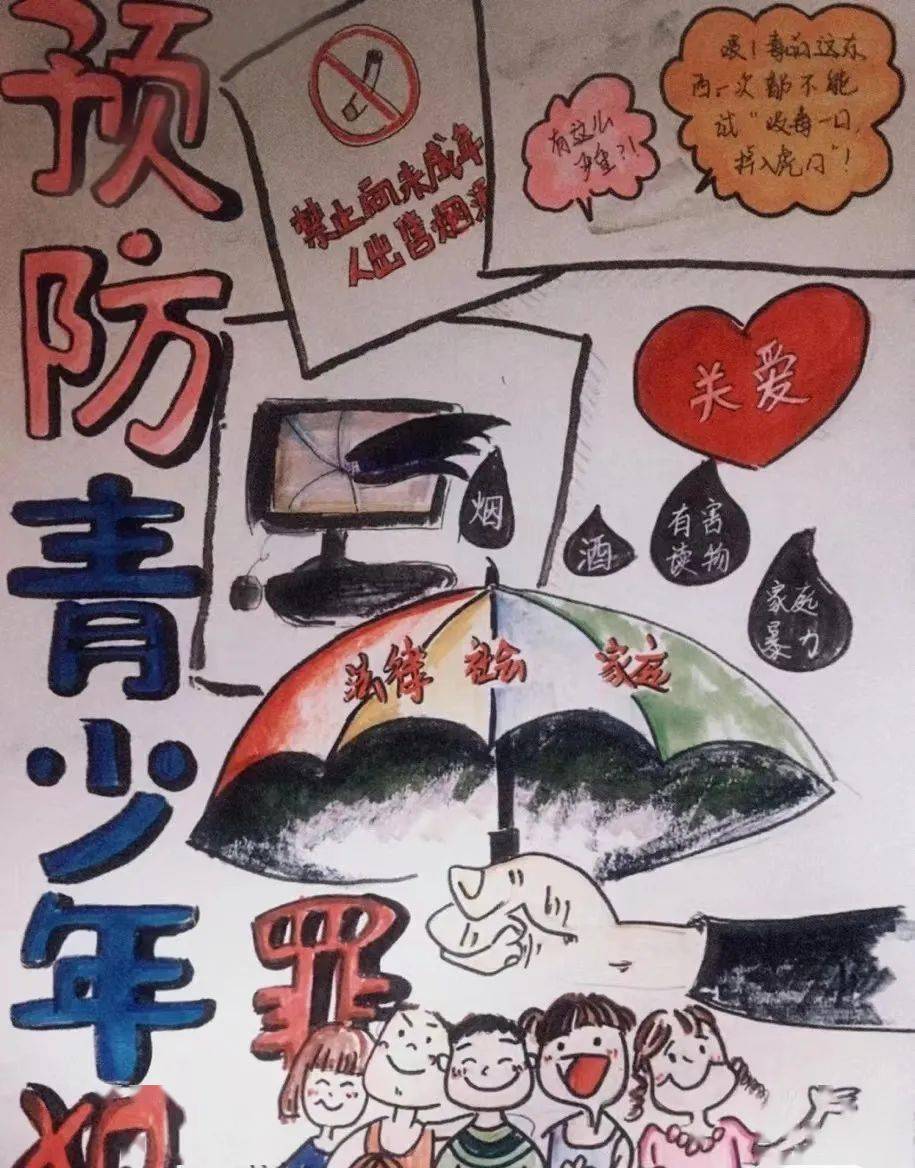 预防青少年犯
罪
禁止向未成年
人出售烟酒
有这么
严重?!
！毒品这东
西一次都不能
试“吸毒一口,
掉入虎口”！
关爱
烟
酒
有害
读物
家庭
暴力
法律 社会 家庭